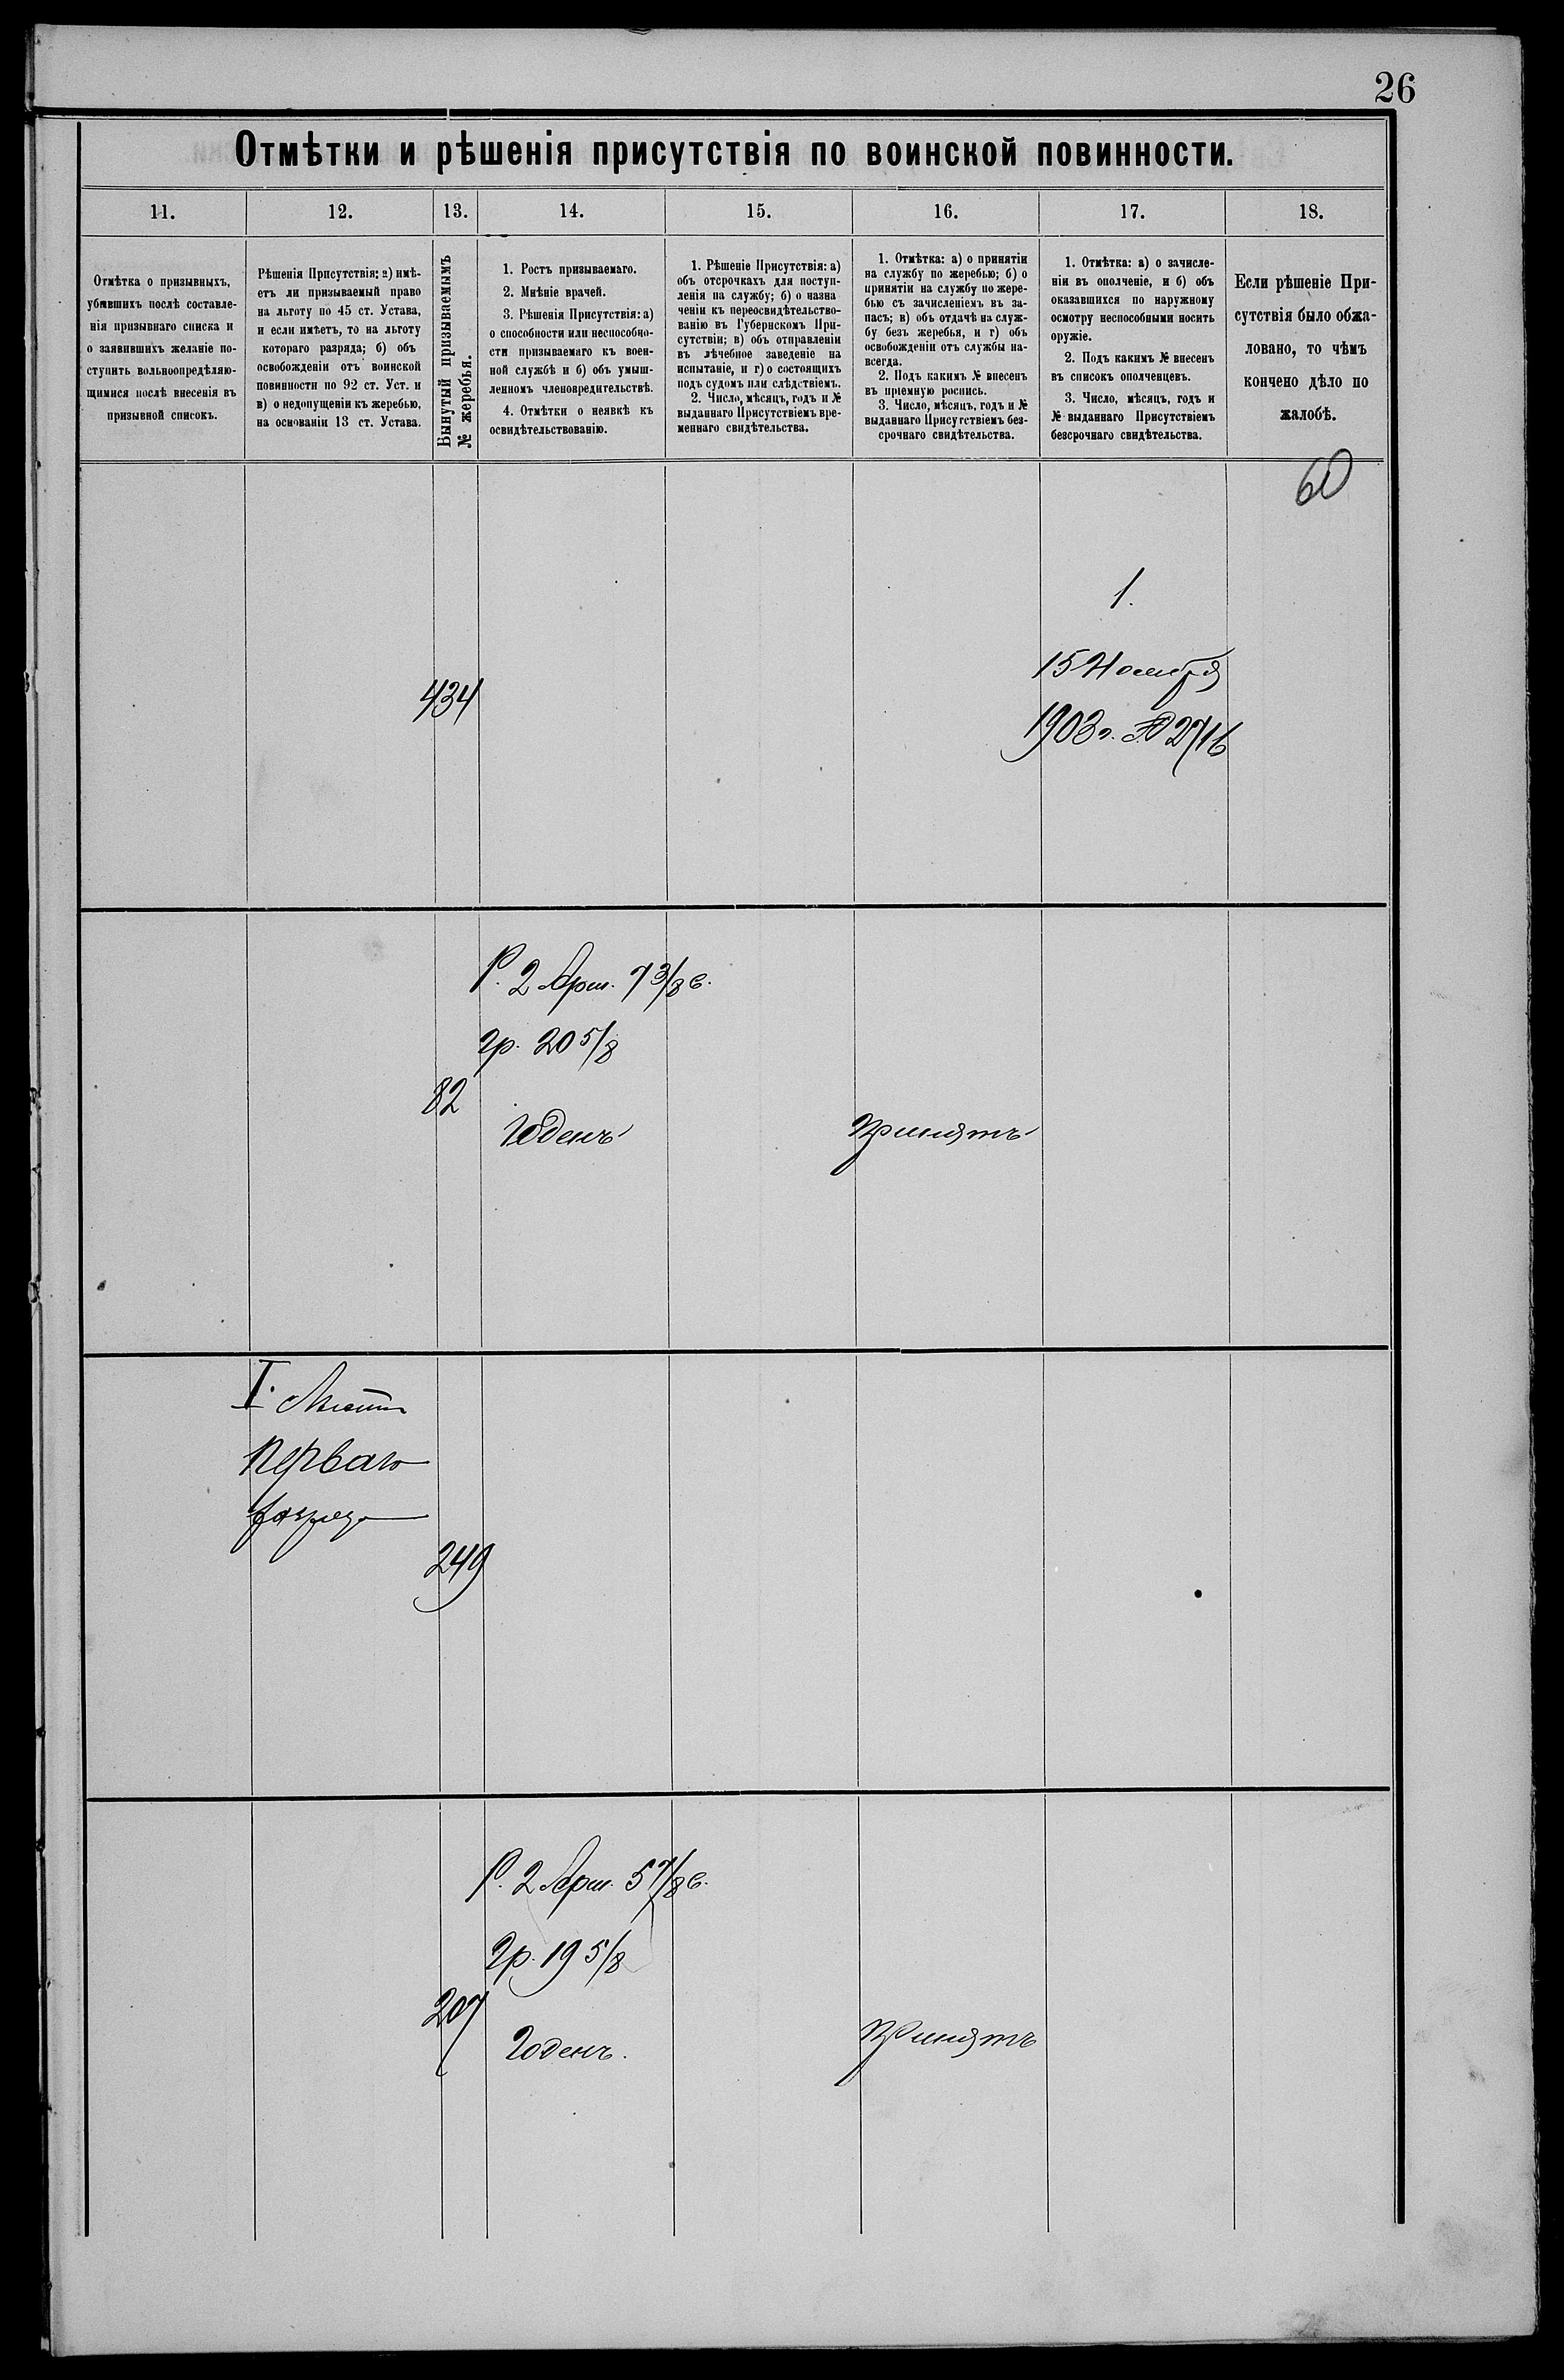 26
Отмѣтки и рѣшенія присутствія по воинской повинности.
11.
12.
13.
14.
15.
16.
17.
18.
Отмѣтка о призывныхъ,
убывшихъ послѣ составле-
нія призывнаго списка и
о заявившихъ желаніе по-
ступить вольноопредѣляю-
щимися послѣ внесенія въ
призывной списокъ.
Рѣшенія Присутствія: а) имѣ-
етъ ли призываемый право
на льготу по 45 ст. Устава,
и если имѣетъ, то на льготу
котораго разряда; б) объ
освобожденіи отъ воинской
повинности по 92 ст. Уст. и
в) о недопущеніи къ жеребью,
на основаніи 13 ст. Устава.
Вынутый призываемымъ
№ жеребья.
1. Ростъ призываемаго.
2. Мнѣніе врачей.
3. Рѣшенія Присутствія: а)
о способности или неспособно-
сти призываемаго къ воен-
ной службѣ и б) объ умыш-
ленномъ членовредительствѣ.
4. Отмѣтки о неявкѣ къ
освидѣтельствованію.
1. Рѣшеніе Присутствія: а)
объ отсрочкахъ для поступ-
ленія на службу; б) о назна
ченіи къ переосвидѣтельство-
ванію въ Губернскомъ При-
сутствіи; в) объ отправленіи
въ лѣчебное заведеніе на
испытаніе, и г) о состоящихъ
подъ судомъ или слѣдствіемъ.
2. Число, мѣсяцъ, годъ и №
выданнаго Присутствіемъ вре-
меннаго свидѣтельства.
1. Отмѣтка: а) о принятіи
на службу по жеребью; б) о
принятіи на службу по жере-
бью съ зачисленіемъ въ за-
пасъ; в) объ отдачѣ на служ-
бу безъ жеребья, и г) объ
освобожденіи отъ службы на-
всегда.
2. Подъ какимъ № внесенъ
въ пріемную роспись.
3. Число, мѣсяцъ, годъ и №
выданнаго Присутствіемъ без-
срочнаго свидѣтельства.
1. Отмѣтка: а) о зачисле-
ніи въ ополченіе, и б) объ
оказавшихся по наружному
осмотру неспособными носить
оружіе.
2. Подъ какимъ № внесенъ
въ списокъ ополченцевъ.
3. Число, мѣсяцъ, годъ и
№ выданнаго Присутствіемъ
безсрочнаго свидѣтельства.
Если рѣшеніе При-
сутствія было обжа-
ловано, то чѣмъ
кончено дѣло по
жалобѣ.
60
434
1.
15 Ноября
1903 г. № 2716
82
Р. 2 Арш. 7 3/8 в.
гр. 20 5/8
Годенъ
Принятъ
I. Льгота
перваго
разряда
249
207
Р. 2 Арш. 5 7/8 в.
гр. 19 5/8
Годенъ.
Принятъ